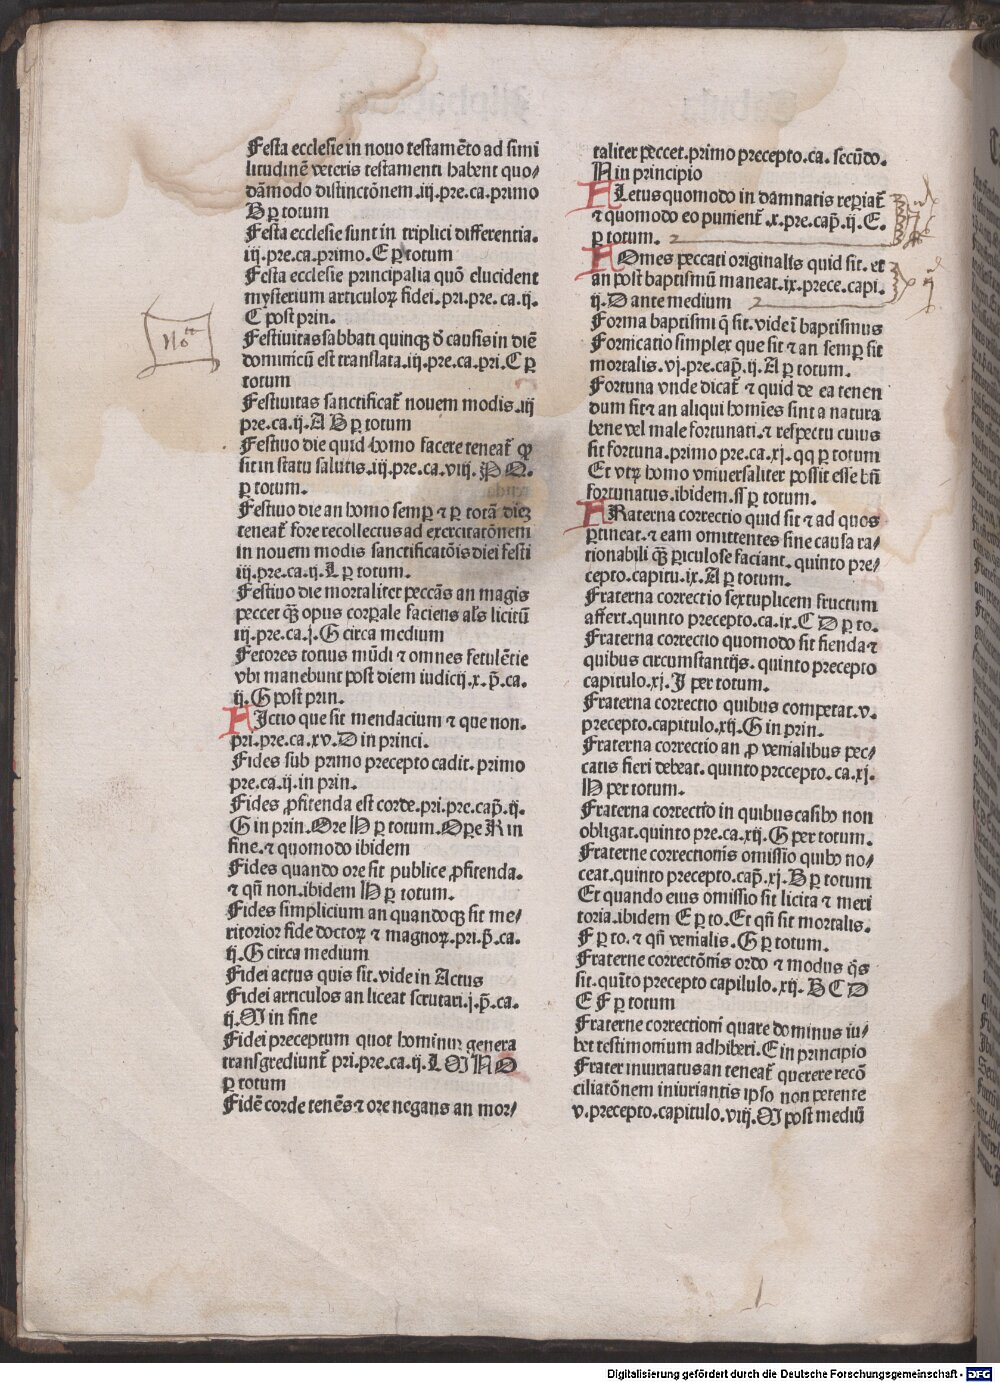 Festa ecclesie in nouo testamēto ad simi
litudinē veteris testamenti habent quo⸗
dāmodo distinctōnem.iij.pre.ca.primo
B ꝑ totum
Festa ecclesie sunt in triplici differentia.
iij.pre.ca.primo.E ꝑ totum
Festa ecclesie principalia quō elucident
mysterium articuloꝝ fidei.pri.pre.ca.ij.
C post prin.
Festiuitas sabbati quinqꝫ d̄ causis in diē
dominicū est translata.iij.pre.ca.pri.C ꝑ
totum
Festiuitas sanctificat᷑ nouem modis.iij
pre.ca.ij.A B ꝑ totum
Festiuo die quid homo facere teneat᷑ ꝙ
sit in statu salutis.iij.pre.ca.viij.P Q.
ꝑ totum.
Festiuo die an homo semꝑ ⁊ ꝑ totā diez
teneat᷑ fore recollectus ad exercitatōnem
in nouem modis sanctificatōis diei festi
iij.pre.ca.ij.L ꝑ totum.
Festiuo die mortaliter peccās an magis
peccet qȝ opus corꝑale faciens als licitū
iij.pre.ca.j.G circa medium
Fetores totius mūdi ⁊ omnes fetulētie
vbi manebunt post diem iudicij.x.p̄.ca.
ij.G post prin.
FIctio que sit mendacium ⁊ que non.
pri.pre.ca.xv.D in princi.
Fides sub primo precepto cadit.primo
pre.ca.ij.in prin.
Fides ꝓfitenda est corde.pri.pre.cap̄.ij.
G in prin.Ore H ꝑ totum.Oꝑe R in
fine.⁊ quomodo ibidem
Fides quando ore sit publice ꝓfitenda.
⁊ qn̄ non.ibidem H ꝑ totum.
Fides simplicium an quandoqꝫ sit me⸗
ritorior fide doctoꝝ ⁊ magnoꝝ.pri.p̄.ca.
ij.G circa medium
Fidei actus quis sit.vide in Actus
Fidei articulos an liceat scrutari.j.p̄.ca.
ij.M in fine
Fidei preceptum quot hominum genera
transgrediunt᷑ pri.pre.ca.ij.L M N O
ꝑ totum
Fidē corde tenēs ⁊ ore negans an mor⸗
taliter peccet.primo precepto.ca.secūdo.
N in principio
FLetus quomodo in damnatis reꝑiat᷑
⁊ quomodo eo punient᷑.x.pre.cap̄.ij.E.
ꝑ totum.
FOmes peccati originalis quid sit.et
an post baptismū maneat.ix.prece.capi.
ij.D ante medium
Forma baptismi q̄ sit.vide ī baptismus
Fornicatio simplex que sit ⁊ an semꝑ sit
mortalis.vj.pre.cap̄.ij.A ꝑ totum.
Fortuna vnde dicat᷑ ⁊ quid de ea tenen
dum sit ⁊ an aliqui homīes sint a natura
bene vel male fortunati.⁊ respectu cuius
sit fortuna.primo pre.ca.xj.qq ꝑ totum
Et vtꝝ homo vniuersaliter possit esse bn̄
fortunatus.ibidem.ss ꝑ totum.
FRaterna correctio quid sit ⁊ ad quos
ꝑtineat.⁊ eam omittentes sine causa ra⸗
tionabili qȝ ꝑiculose faciant.quinto pre⸗
cepto.capitu.ix.A ꝑ totum.
Fraterna correctio sextuplicem fructum
affert.quinto precepto.ca.ix.C D ꝑ to.
Fraterna correctio quomodo sit fienda ⁊
quibus circumstantijs.quinto precepto
capitulo.xj.J per totum.
Fraterna correctio quibus competat.v.
precepto.capitulo.xij.G in prin.
Fraterna correctio an ꝓ venialibus pec⸗
catis fieri debeat.quinto precepto.ca.xj.
H per totum.
Fraterna correctio in quibus casibꝰ non
obligat.quinto pre.ca.xij.G per totum.
Fraterne correctionis omissio quibꝰ no⸗
ceat.quinto precepto.cap̄.xj.B ꝑ totum
Et quando eius omissio sit licita ⁊ meri
toria.ibidem E ꝑ to.Et qn̄ sit mortalis.
F ꝑ to.⁊ qn̄ venialis.G ꝑ totum.
Fraterne correctōnis ordo ⁊ modus q̄s
sit.quīto precepto capitulo.xij.B C D
E F ꝑ totum
Fraterne correctioni quare dominus iu⸗
bet testimonium adhiberi.E in principio
Frater iniuriatus an teneat᷑ querere recō
ciliatōnem iniuriantis ipso non petente
v.precepto.capitulo.viij.M post mediū
Digitalisierung gefördert durch die Deutsche Forschungsgemeinschaft - DFG